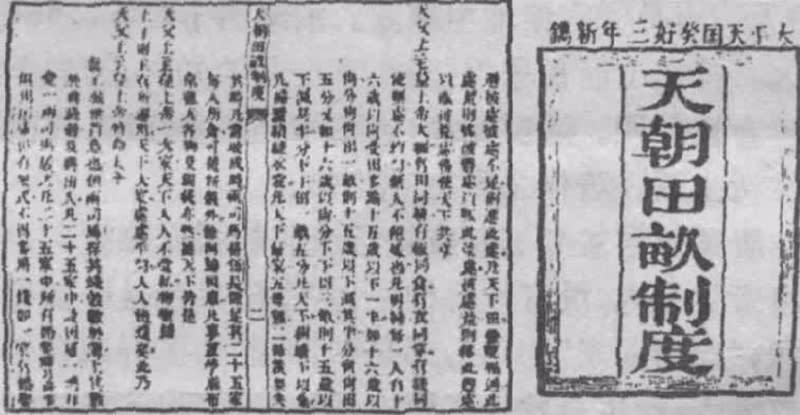 太平天国癸好三年新鐫
天朝田畝制度
彼處彼處不足則遷此處凡天下田豐荒相通此
處荒則移彼豐處以賑此荒處彼處荒則移此豐處
以賑彼荒處務使天下共享
天父上主皇上帝大福有田同耕有飯同食有衣同穿有錢同
使無處不均勻無人不飽煖也凡男婦每一人自十
六歲以尚受田多踰十五歲以下一半如十六歲以
尚分尚尚田一畝則十五歲以下減其半分尚尚田
五分又如十六歲以尚分下下田三畝則十五歲以
下減其半分下下田一畝五分凡天下樹墻下以桑
凡婦蠶績縫衣裳凡天下每家五母雞二母彘無失
天朝田畝制度 二
其時凡當收成時兩司馬督伍長除足其二十五家
每人所食可接新穀外餘則歸國庫凡麥豆苧麻布
帛雞犬各物及銀錢亦然蓋天下皆是
天父上主皇上帝一大家天下人人不受私物物歸
上主則主有所運用天下大家處處平勻人人飽煖矣此乃
天父上主皇上帝特命太平
真主救世旨意也但兩司馬存其錢穀數於簿上其數
於典錢穀及典出入凡二十五家中設國庫一禮拜
堂一兩司馬居之凡二十五家中所有婚娶彌月喜事
俱用國庫但有限式不得多用一錢如一家有婚娶